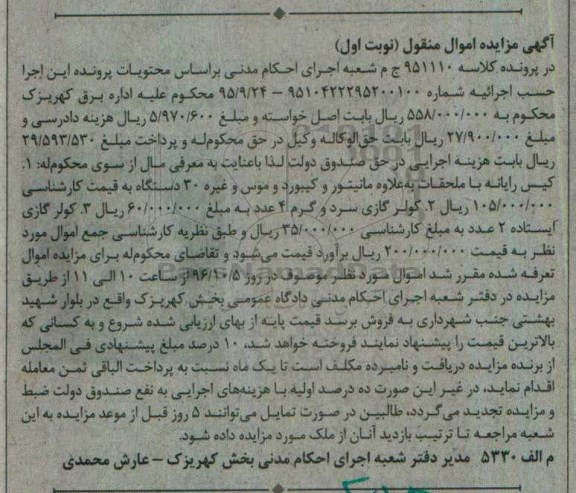 آگهی مزایده اموال منقول (نوبت اول)
در پرونده کلاسه ۹۵۱۱۱۰ ج م شعبه اجرای احکام مدنی براساس محتویات پرونده این اجرا
حسب اجرائیه شماره ۹۵۱۰۴۲۲۲۹۵۲۰۰۱۰۰ – ۹۵/۹/۲۴ محکوم علیه اداره برق کهریزک
محکوم به ۵۵۸/۰۰۰/۰۰۰ ریال بابت اصل خواسته و مبلغ ۵/۹۷۰/۶۰۰ ریال هزینه دادرسی و
مبلغ ۲۷/۹۰۰/۰۰۰ ریال بابت حق‌الوکاله وکیل در حق محکوم‌له و پرداخت مبلغ ۲۹/۵۹۳/۵۳۰
ریال بابت هزینه اجرایی در حق صندوق دولت لذا باعنایت به معرفی مال از سوی محکوم‌له: ۱.
کیس رایانه با ملحقات به‌علاوه مانیتور و کیبورد و موس و غیره ۳۰ دستگاه به قیمت کارشناسی
۱۰۵/۰۰۰/۰۰۰ ریال ۲. کولر گازی سرد و گرم ۴ عدد به مبلغ ۶۰/۰۰۰/۰۰۰ ریال ۳. کولر گازی
ایستاده ۲ عدد به مبلغ کارشناسی ۳۵/۰۰۰/۰۰۰ ریال و طبق نظریه کارشناسی جمع اموال مورد
نظر به قیمت ۲۰۰/۰۰۰/۰۰۰ ریال برآورد قیمت می‌شود و تقاضای محکوم‌له برای مزایده اموال
تعرفه شده مقرر شد اموال مورد نظر موصوف در روز ۹۶/۱۰/۵ از ساعت ۱۰ الی ۱۱ از طریق
مزایده در دفتر شعبه اجرای احکام مدنی دادگاه عمومی بخش کهریزک واقع در بلوار شهید
بهشتی جنب شهرداری به فروش برسد قیمت پایه از بهای ارزیابی شده شروع و به کسانی که
بالاترین قیمت را پیشنهاد نمایند فروخته خواهد شد، ۱۰ درصد مبلغ پیشنهادی فی المجلس
از برنده مزایده دریافت و نامبرده مکلف است تا یک ماه نسبت به پرداخت الباقی ثمن معامله
اقدام نماید، در غیر این صورت ده درصد اولیه با هزینه‌های اجرایی به نفع صندوق دولت ضبط
و مزایده تجدید می‌گردد، طالبین در صورت تمایل می‌توانند ۵ روز قبل از موعد مزایده به این
شعبه مراجعه تا ترتیب بازدید آنان از ملک مورد مزایده داده شود.
م الف ۵۳۳۰ مدیر دفتر شعبه اجرای احکام مدنی بخش کهریزک – عارش محمدی